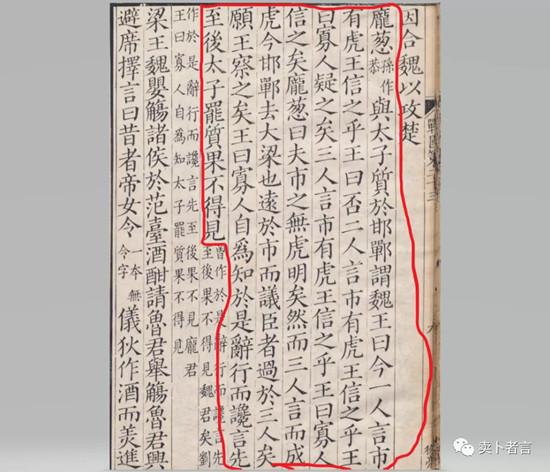 因合魏以攻楚
龐葱孫作恭與太子質於邯鄲謂魏王曰今一人言市
有虎王信之乎王曰否二人言市有虎王信之乎王
曰寡人疑之矣三人言市有虎王信之乎王曰寡人
信之矣龐葱曰夫市之無虎明矣然而三人言而成
虎今邯鄲去大梁也遠於市而議臣者過於三人矣
願王察之矣王曰寡人自爲知於是辭行而讒言先
至後太子罷質果不得見曾作於是辭行而讒言先
至後果不得見魏君矣劉
作於是辭行而讒言先至後果不見龐君
王曰寡人自爲知太子罷質果不得見
梁王魏嬰觴諸侯於范臺酒酣請魯君舉觴魯君興
避席擇言曰昔者帝女令一本無令字儀狄作酒而美進
卖卜者言